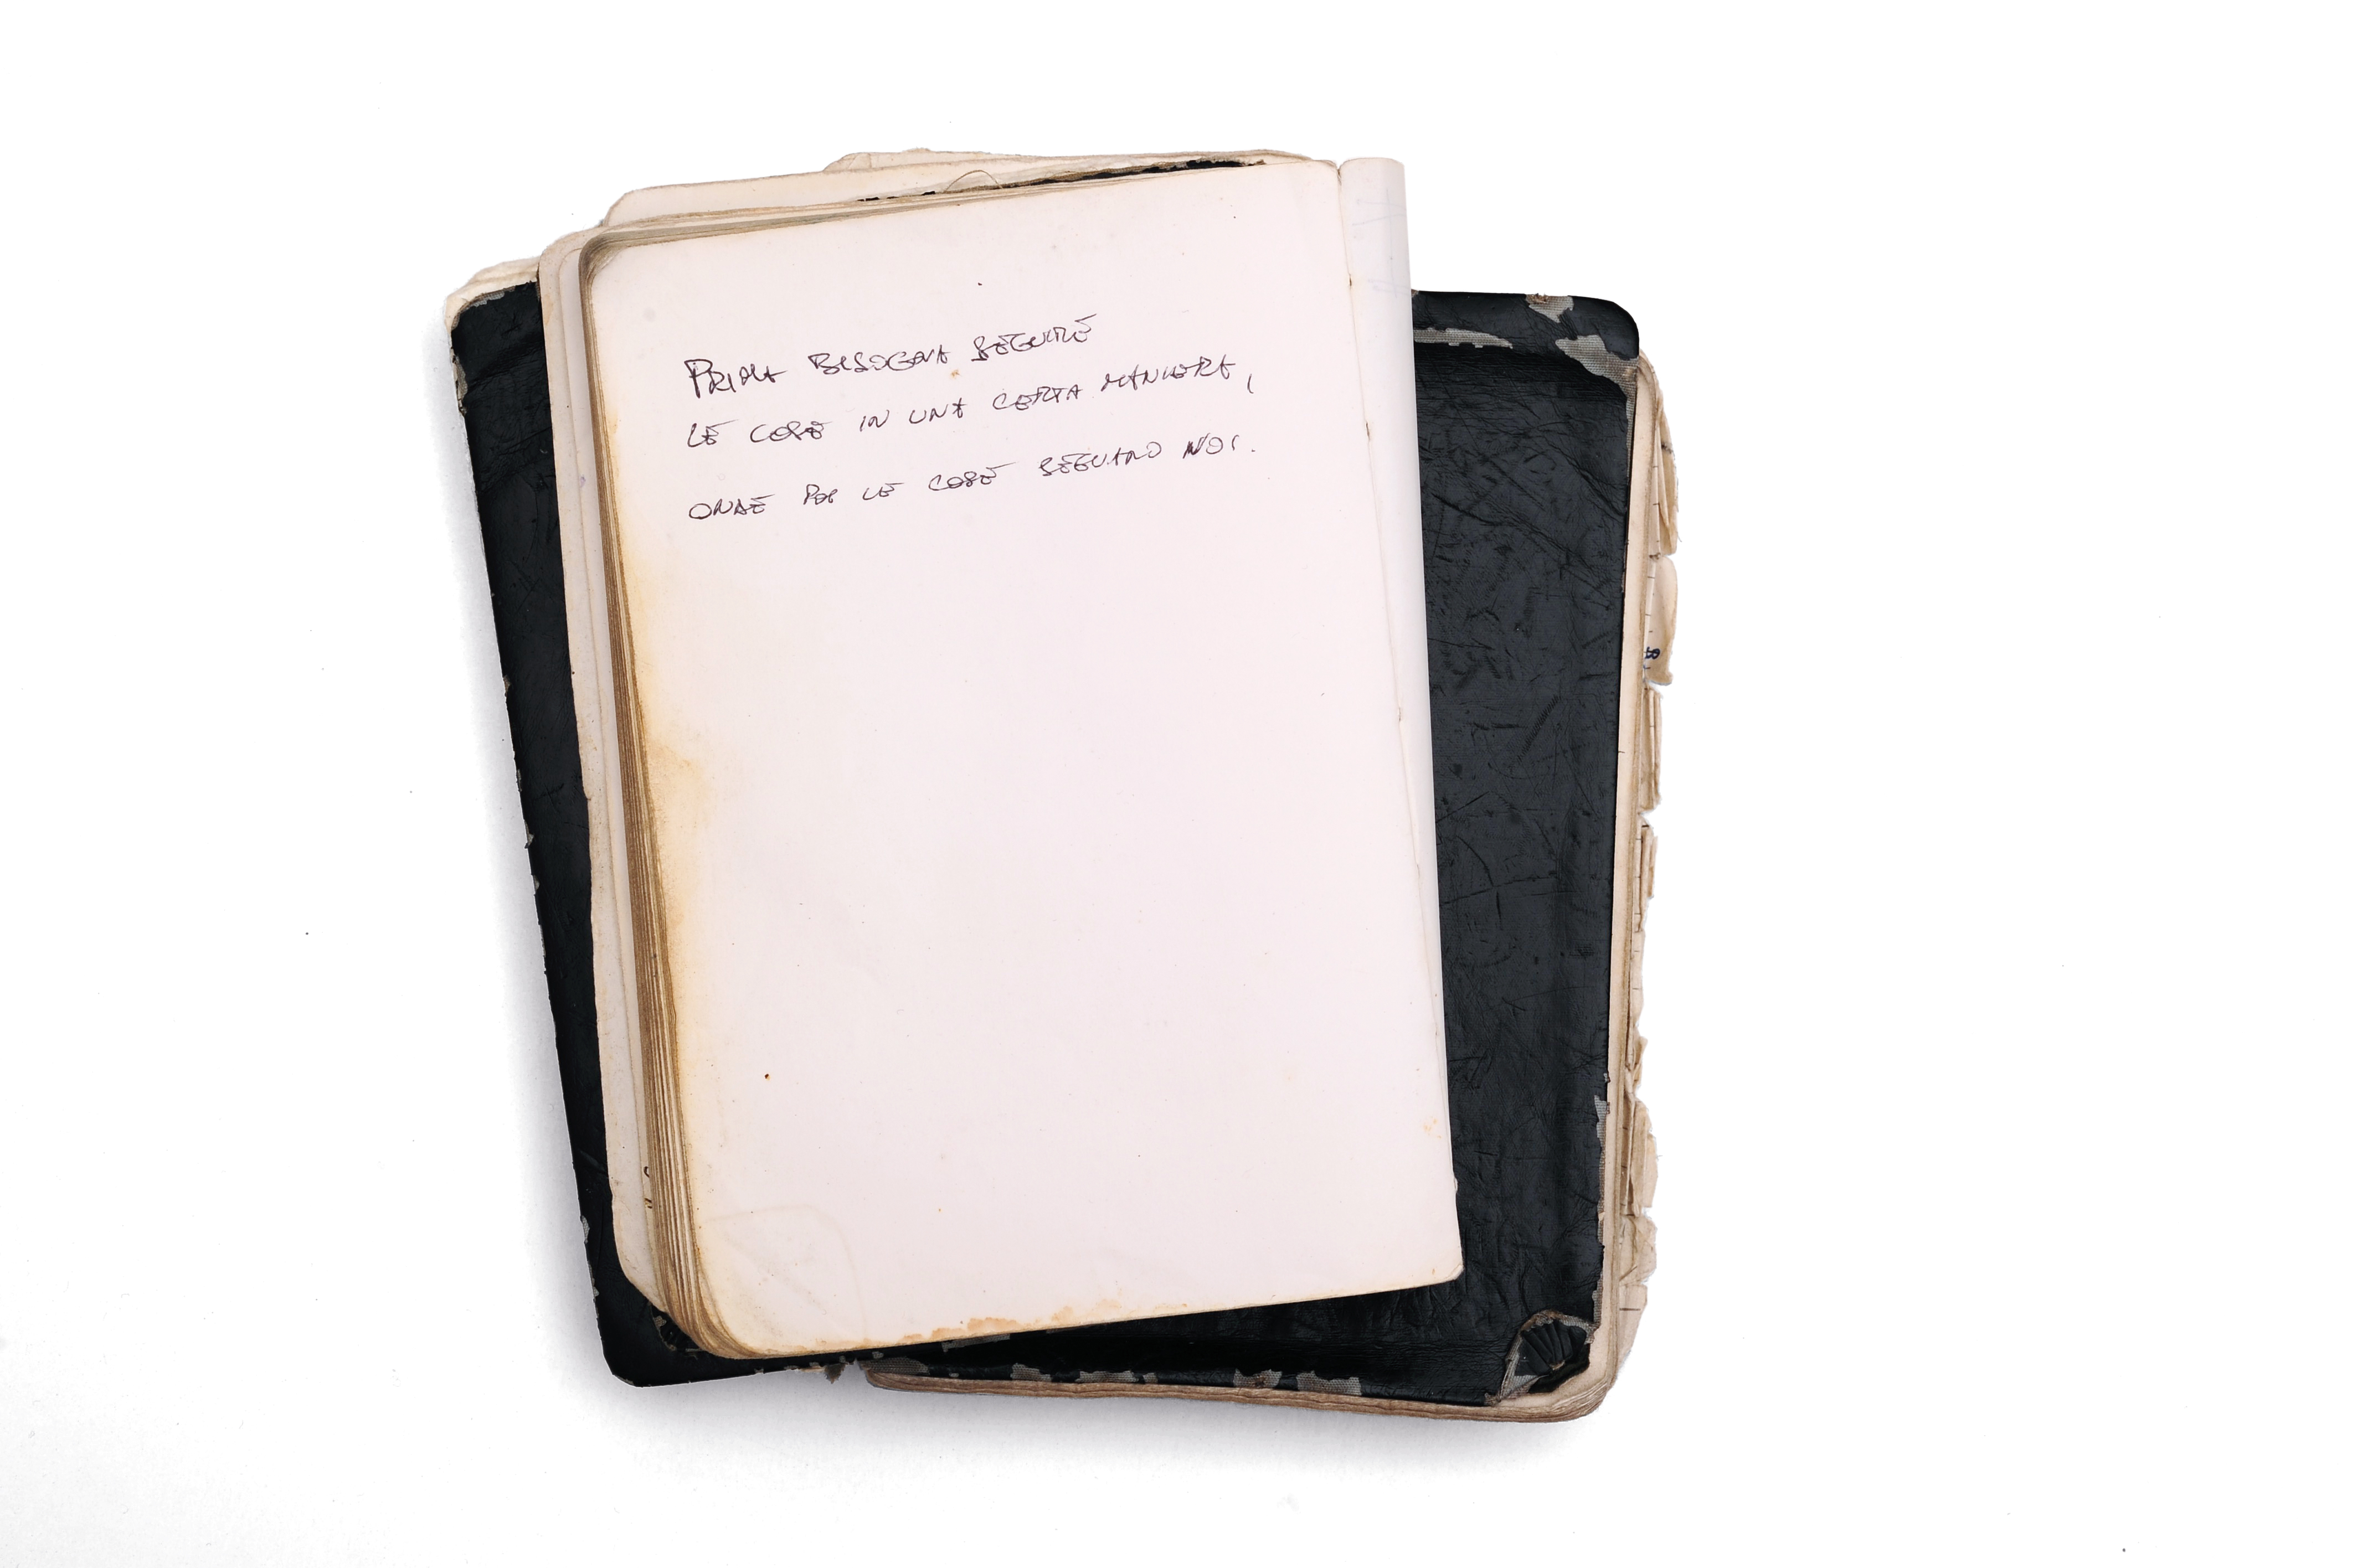 PRIMA BISOGNA SEGUIRE
LE COSE IN UNA CERTA MANIERA,
ONDE POI LE COSE SEGUANO NOI.